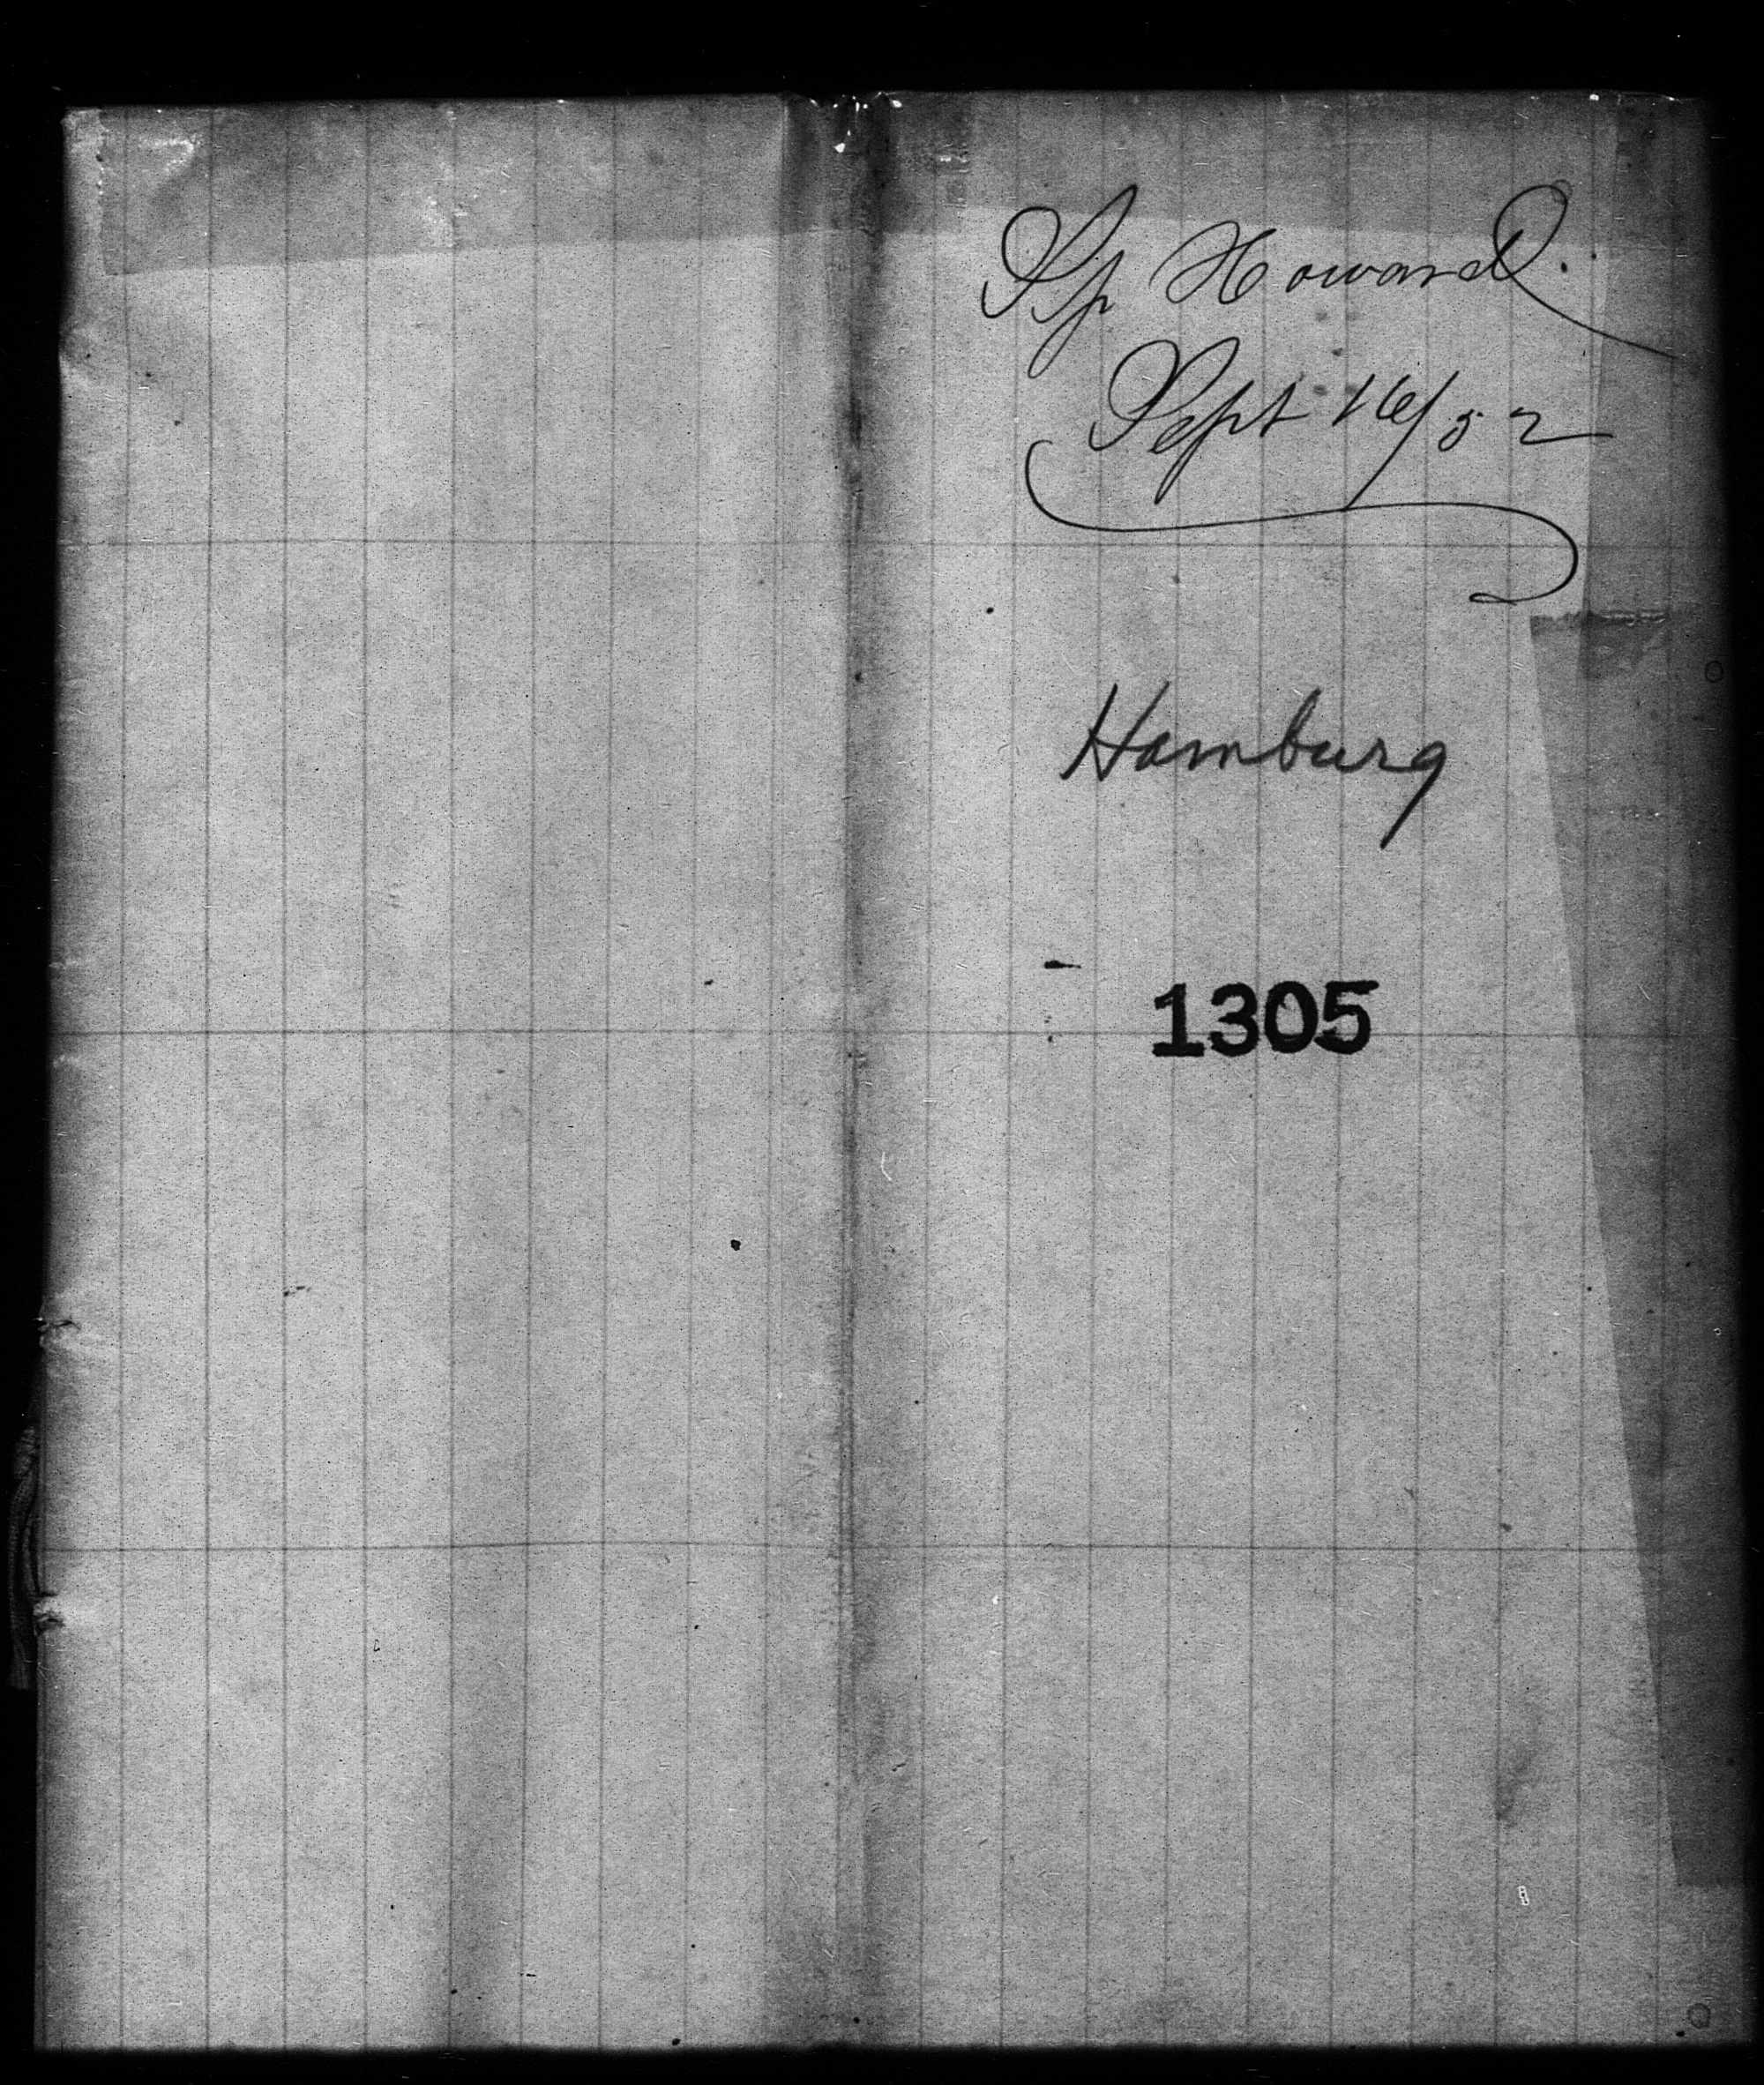 Sp Howard.
Sept 16/52
Hamburg
1305